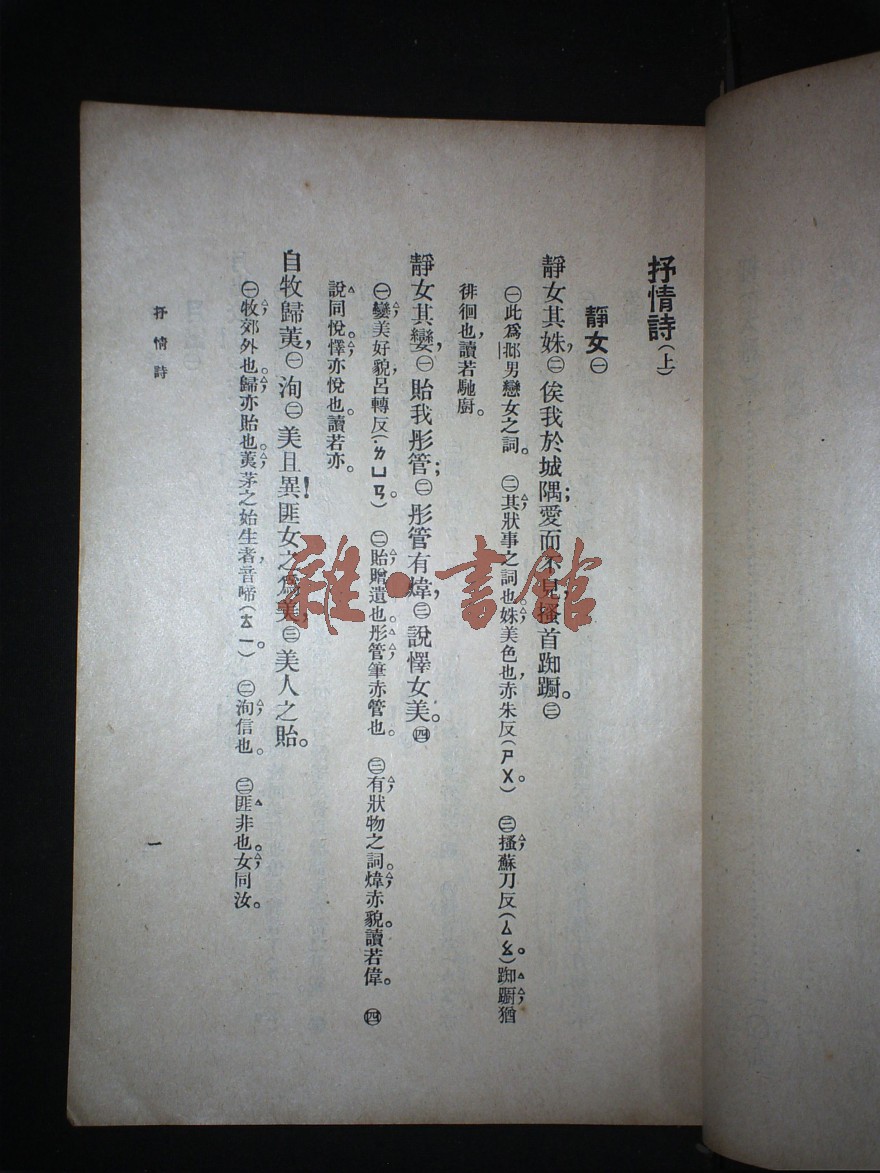 抒情詩(上)
靜女㊀
靜女其姝,㊁俟我於城隅;愛而不見,搔首踟躕。㊂
㊀此爲邶男戀女之詞。 ㊁其,狀事之詞也;姝,美色也,赤朱反(ㄕㄨ)。 ㊂搔,蘇刀反(ㄙㄠ)。踟躕,猶
徘徊也,讀若馳廚。
靜女其孌,㊀貽我彤管;㊁彤管有煒,㊂說懌女美。㊃
㊀孌,美好貌,呂轉反(ㄌㄩㄢ)。 ㊁貽,贈遺也。彤管,筆赤管也。 ㊂有,狀物之詞。煒,赤貌。讀若偉。 ㊃
說同悅。懌,亦悅也。讀若亦。
自牧歸荑,㊀洵㊁美且異!匪女之爲美,㊂美人之貽。
㊀牧,郊外也。歸,亦貽也。荑,茅之始生者,音啼(ㄊㄧ)。 ㊁洵,信也。 ㊂匪,非也。女同汝。
抒情詩
一
雜·書館